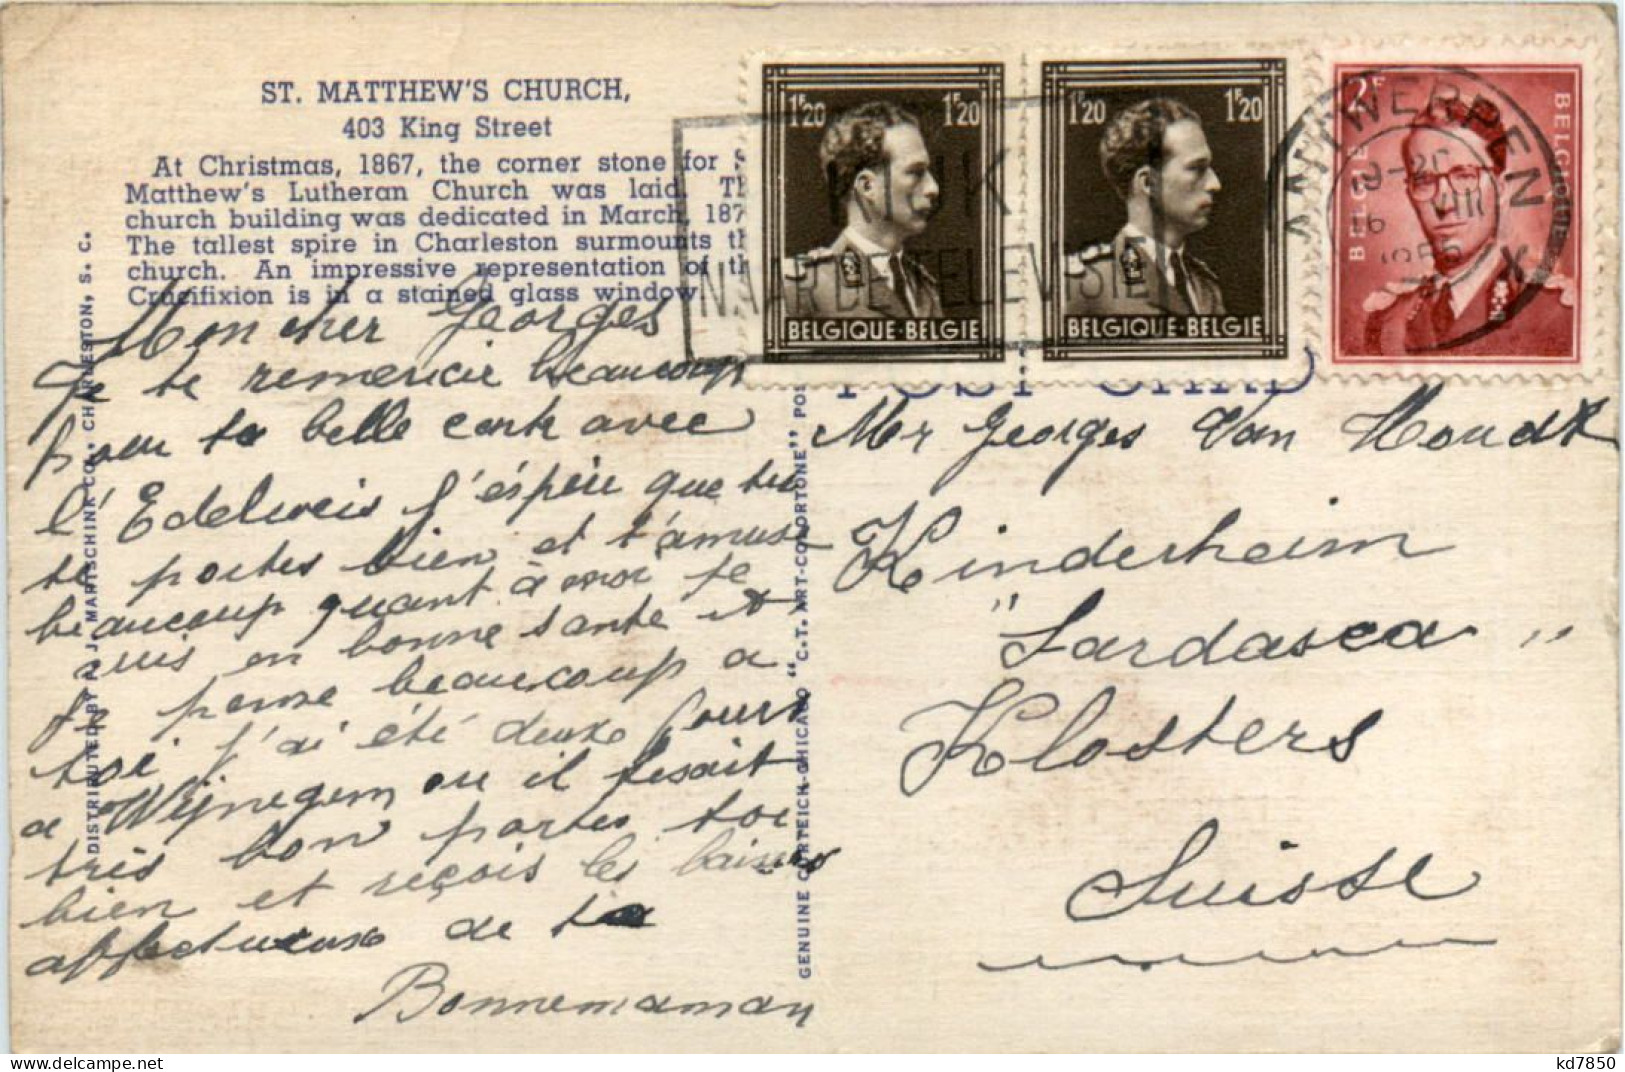 ST. MATTHEW'S CHURCH,
403 King Street
At Christmas, 1867, the corner stone for S
Matthew's Lutheran Church was laid. Th
church building was dedicated in March, 187
The tallest spire in Charleston surmounts th
church. An impressive representation of th
Crucifixion is in a stained glass window.
Mon cher Georges
Je te remercie beaucoup
pour ta belle carte avec
l'Edelweis j'espère que tu
te portes bien et t'amuse
beaucoup quant à moi je
suis en bonne sante et
je pense beaucoup a
toi j'ai été deux jours
a Wijnegem ou il fesait
très bon portes toi
bien et reçois les baisers
affectueuse de ta
Bonnemaman
DISTRIBUTED BY A. J. MARTSCHINK CO., CHARLESTON, S. C.
GENUINE CURTEICH-CHICAGO "C.T. ART-COLORTONE" POS
POST CARD
1F20 1F20
BELGIQUE-BELGIE
1F20 1F20
BELGIQUE-BELGIE
2F
BELGIE
BELGIQUE
KIJK
NAAR DE TELEVISIE
ANTWERPEN X
16 VIII
Mr Georges Van Houdt
Kinderheim
"Sardasca"
Klosters
Suisse
kd7850